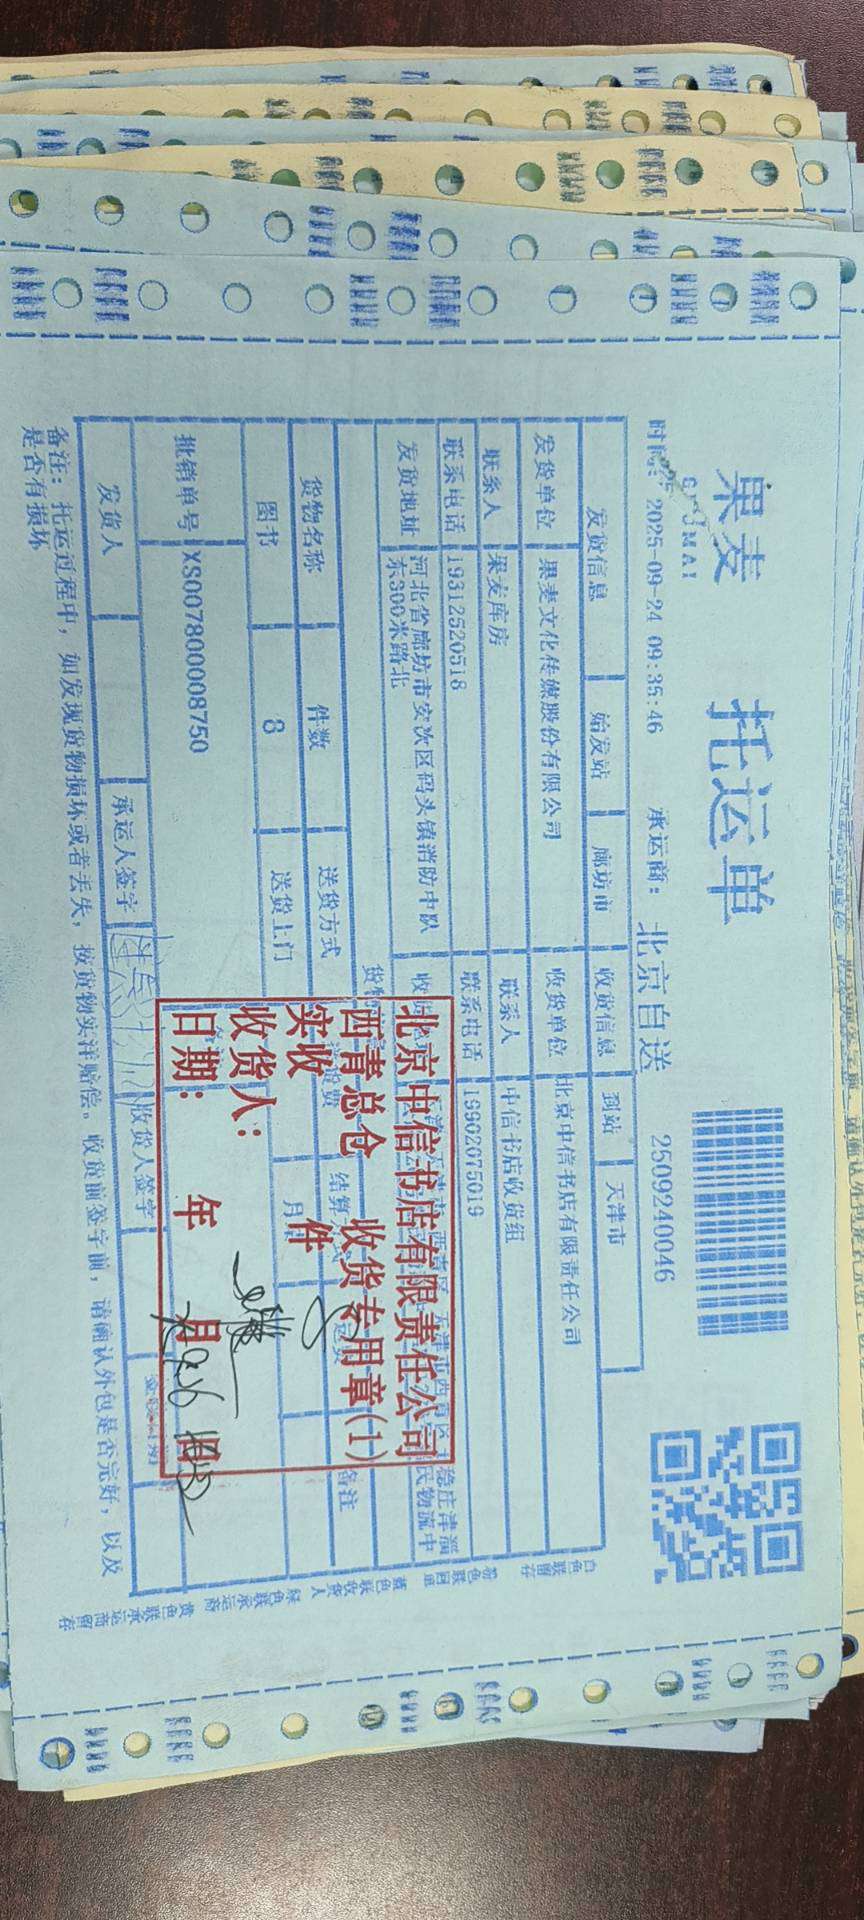 果麦
GUOMAI
托运单
2509240046
时间: 2025-09-24 09:35:46 承运商: 北京自送
发货信息 始发站 廊坊市 收货信息 到站 天津市
发货单位 果麦文化传媒股份有限公司 收货单位 北京中信书店有限责任公司
联系人 果麦库房 联系人 中信书店收货组
联系电话 19312520518 联系电话 19902075019
发货地址 河北省廊坊市安次区码头镇消防中队
东300米路北
货物名称 件数 送货方式 备注
图书 8 送货上门
批销单号 XS007800008750
发货人 承运人签字 收货人签字
备注: 托运过程中, 如发现货物损坏或者丢失, 按货物实洋赔偿。收货前签字前, 请确认外包是否完好, 以及
是否有损坏
北京中信书店有限责任公司
西青总仓 收货专用章(1)
实收 件
8
收货人:
日期: 年 月 日
白色联留存
蓝色联收货人
绿色联承运商
黄色联承运商留存